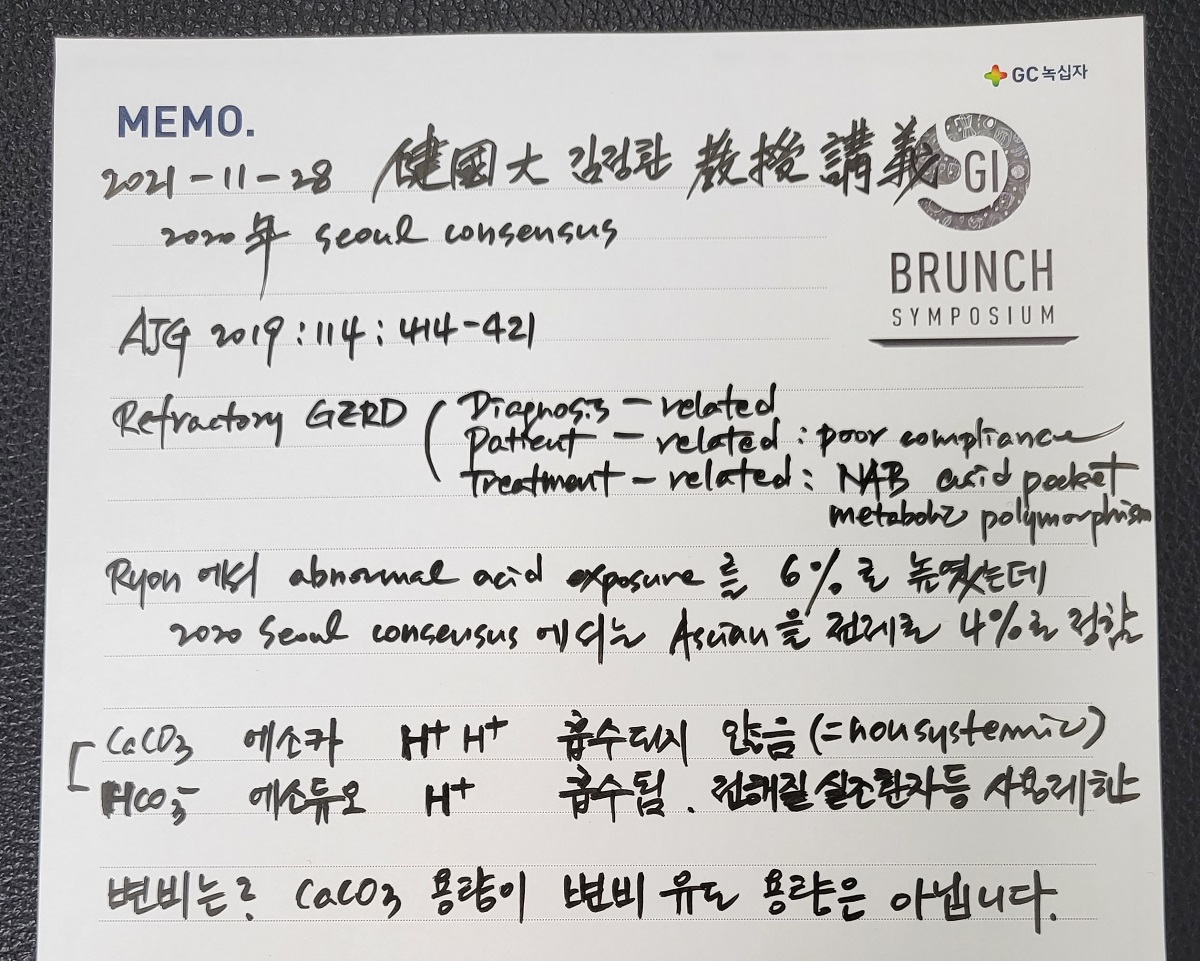 GC녹십자
MEMO.
2021-11-28 健國大 김정환 教授 講義
GI
2020年 seoul consensus
BRUNCH
SYMPOSIUM
AJG 2019:114:414-421
Refractory GERD ( Diagnosis-related
Patient-related: poor compliance
Treatment-related: NAB acid pocket
metabolic polymorphism
Ryon에서 abnormal acid exposure를 6%로 높였는데
2020 Seoul consensus에서는 Asian을 전제로 4%로 정함
[ CaCO3 에소카 H+ H+ 흡수되지 않음 (=nonsystemic)
HCO3- 에소듀오 H+ 흡수됨. 전해질 실조환자등 사용제한
변비는? CaCO3 용량이 변비 유도 용량은 아닙니다.